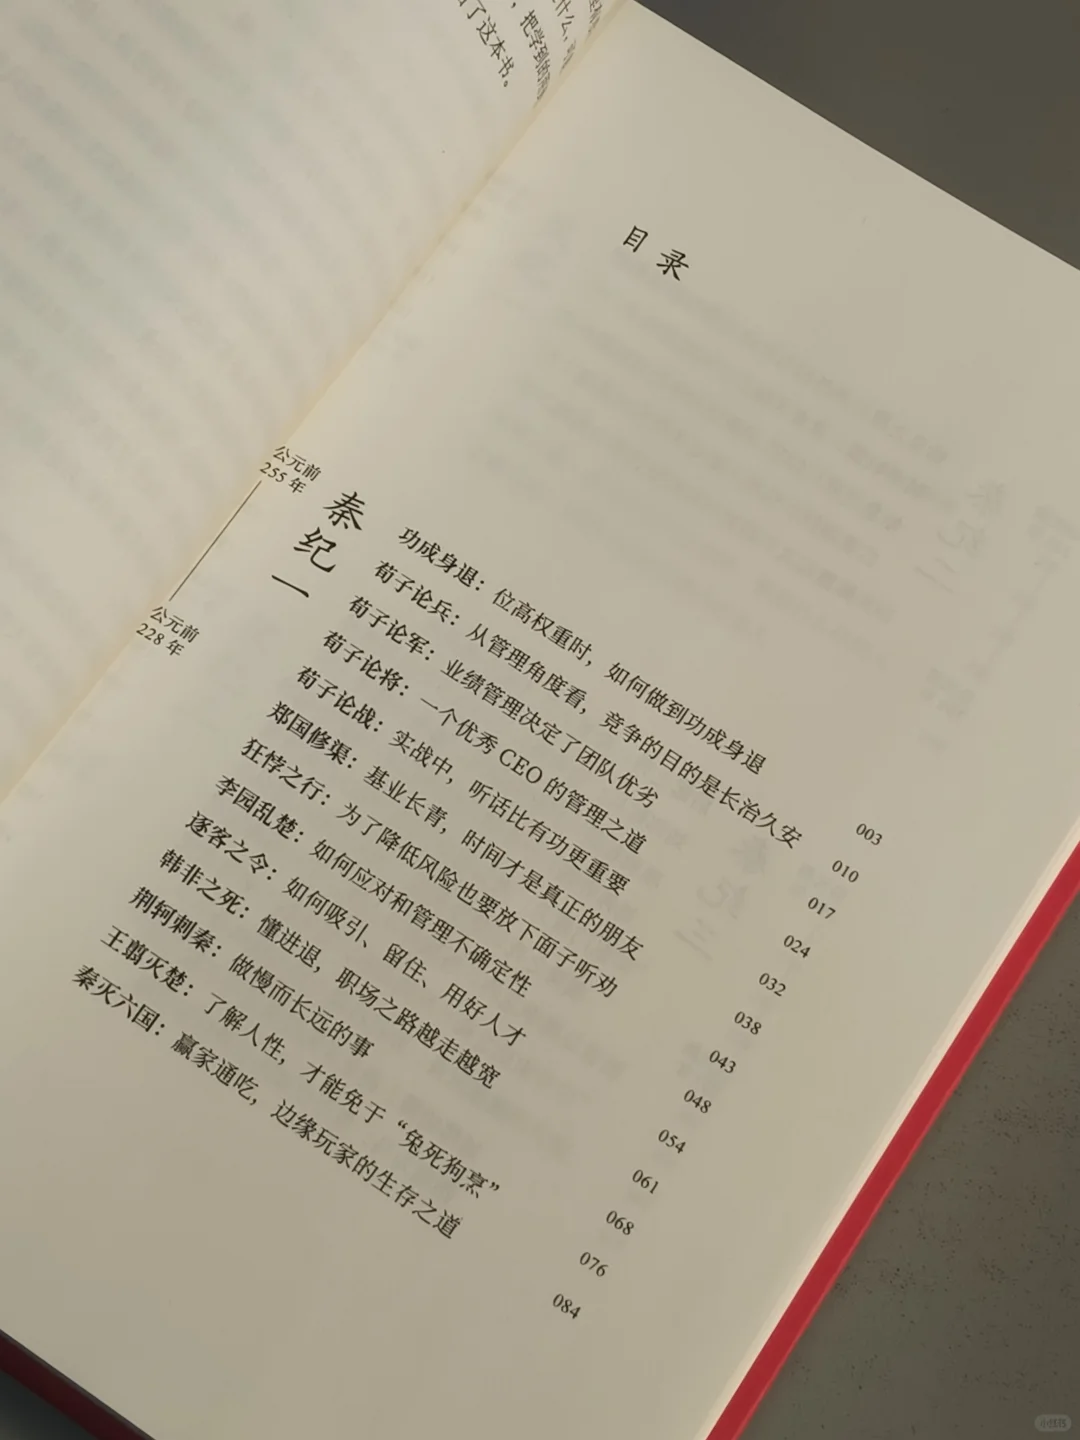 什么,
,把学到的
了这本书。
目录
公元前
255 年
公元前
228 年
秦纪一
功成身退：位高权重时，如何做到功成身退 003
荀子论兵：从管理角度看，竞争的目的是长治久安 010
荀子论军：业绩管理决定了团队优劣 017
荀子论将：一个优秀 CEO 的管理之道 024
荀子论战：实战中，听话比有功更重要 032
郑国修渠：基业长青，时间才是真正的朋友 038
狂悖之行：为了降低风险也要放下面子听劝 043
李园乱楚：如何应对和管理不确定性 048
逐客之令：如何吸引、留住、用好人才 054
韩非之死：懂进退，职场之路越走越宽 061
荆轲刺秦：做慢而长远的事 068
王翦灭楚：了解人性，才能免于“兔死狗烹” 076
秦灭六国：赢家通吃，边缘玩家的生存之道 084
小红书